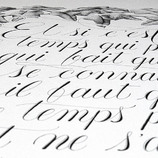 Et si c'est
temps qui p
qui fait qu
se connai
il faut q
temps p
t ne s'a